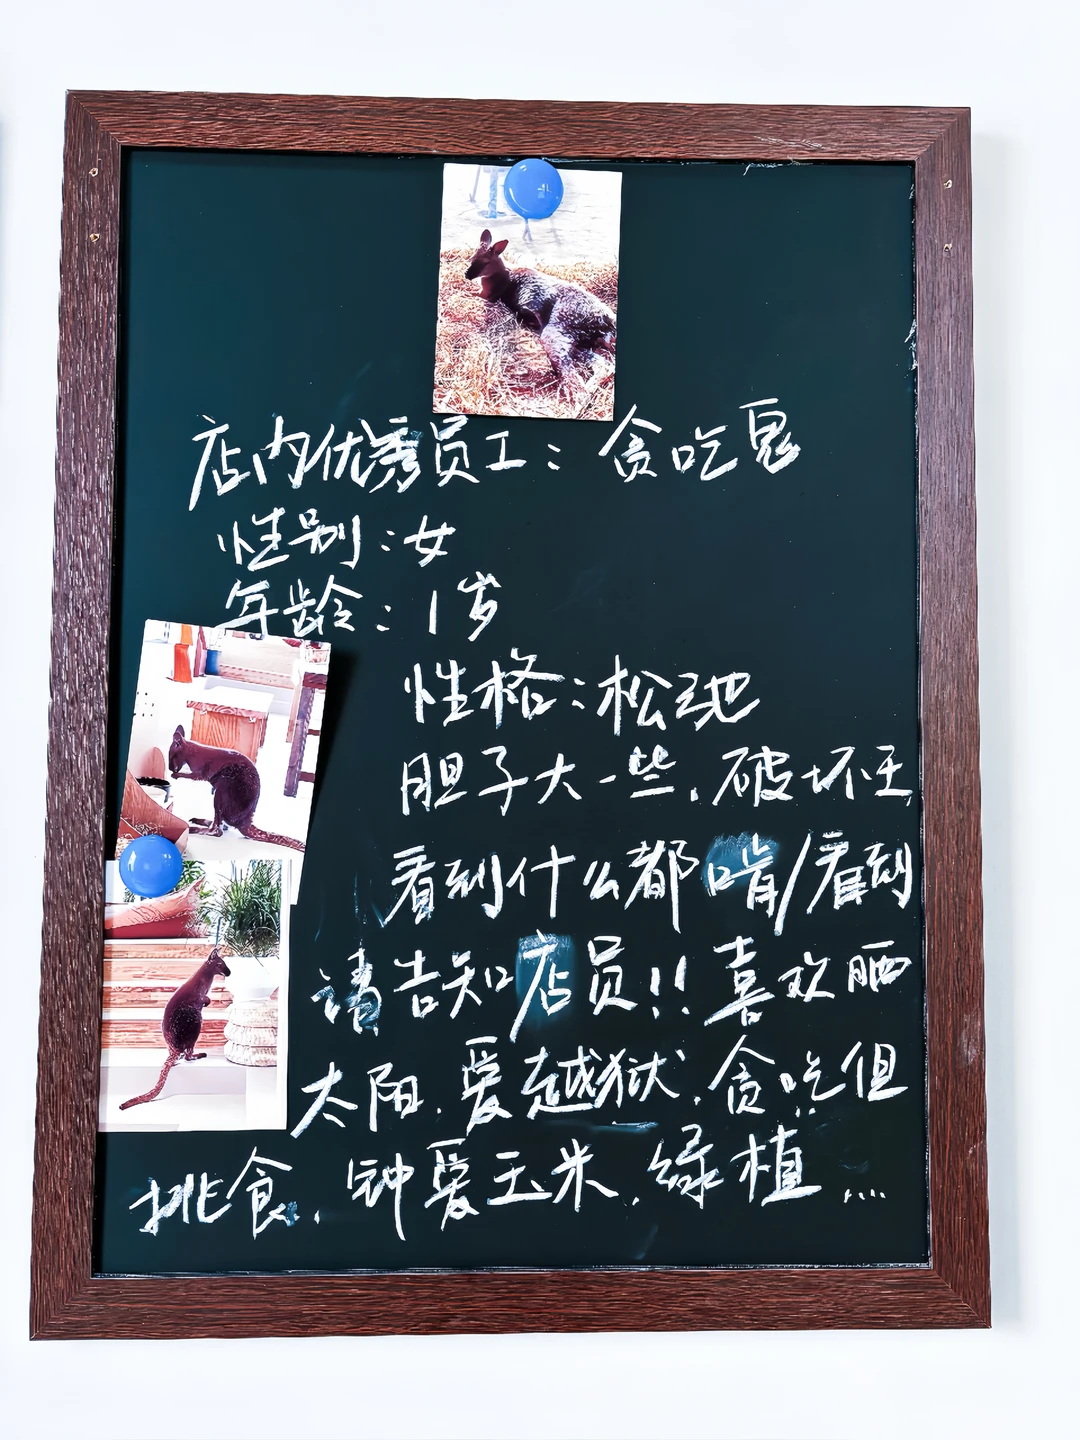 店内优秀员工：贪吃鬼
性别：女
年龄：1岁
性格：松弛
胆子大一些，破坏王
看到什么都啃/看到
请告知店员!! 喜欢晒
太阳，爱越狱，贪吃但
挑食，钟爱玉米，绿植....